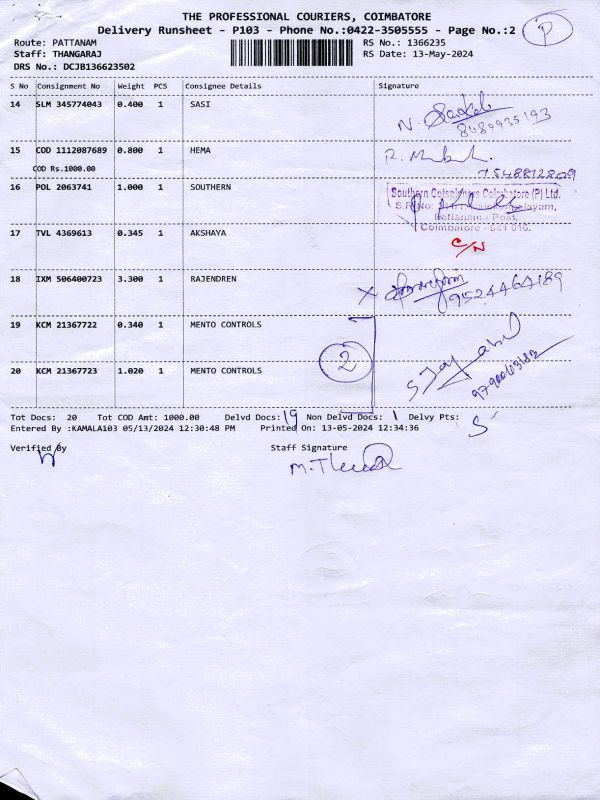 THE PROFESSIONAL COURIERS, COIMBATORE
Delivery Runsheet - P103 - Phone No.:0422-3505555 - Page No.:2 P
Route: PATTANAM RS No.: 1366235
Staff: THANGARAJ RS Date: 13-May-2024
DRS No.: DCJB136623502
S No Consignment No Weight PCS Consignee Details Signature
14 SLM 345774043 0.400 1 SASI
8489935193
15 COD 1112087689 0.800 1 HEMA
COD Rs.1000.00 7548812809
16 POL 2063741 1.000 1 SOUTHERN
Southern Coimbatore (P) Ltd.
Pattanam - Post,
Coimbatore - 641 016.
17 TVL 4369613 0.345 1 AKSHAYA
C/N
18 IXM 506400723 3.300 1 RAJENDREN X 9524464189
19 KCM 21367722 0.340 1 MENTO CONTROLS
2
20 KCM 21367723 1.020 1 MENTO CONTROLS
Tot Docs: 20 Tot COD Amt: 1000.00 Delvd Docs: 19 Non Delvd Docs: 1 Delvy Pts:
Entered By :KAMALA103 05/13/2024 12:30:48 PM Printed On: 13-05-2024 12:34:36
Verified By Staff Signature